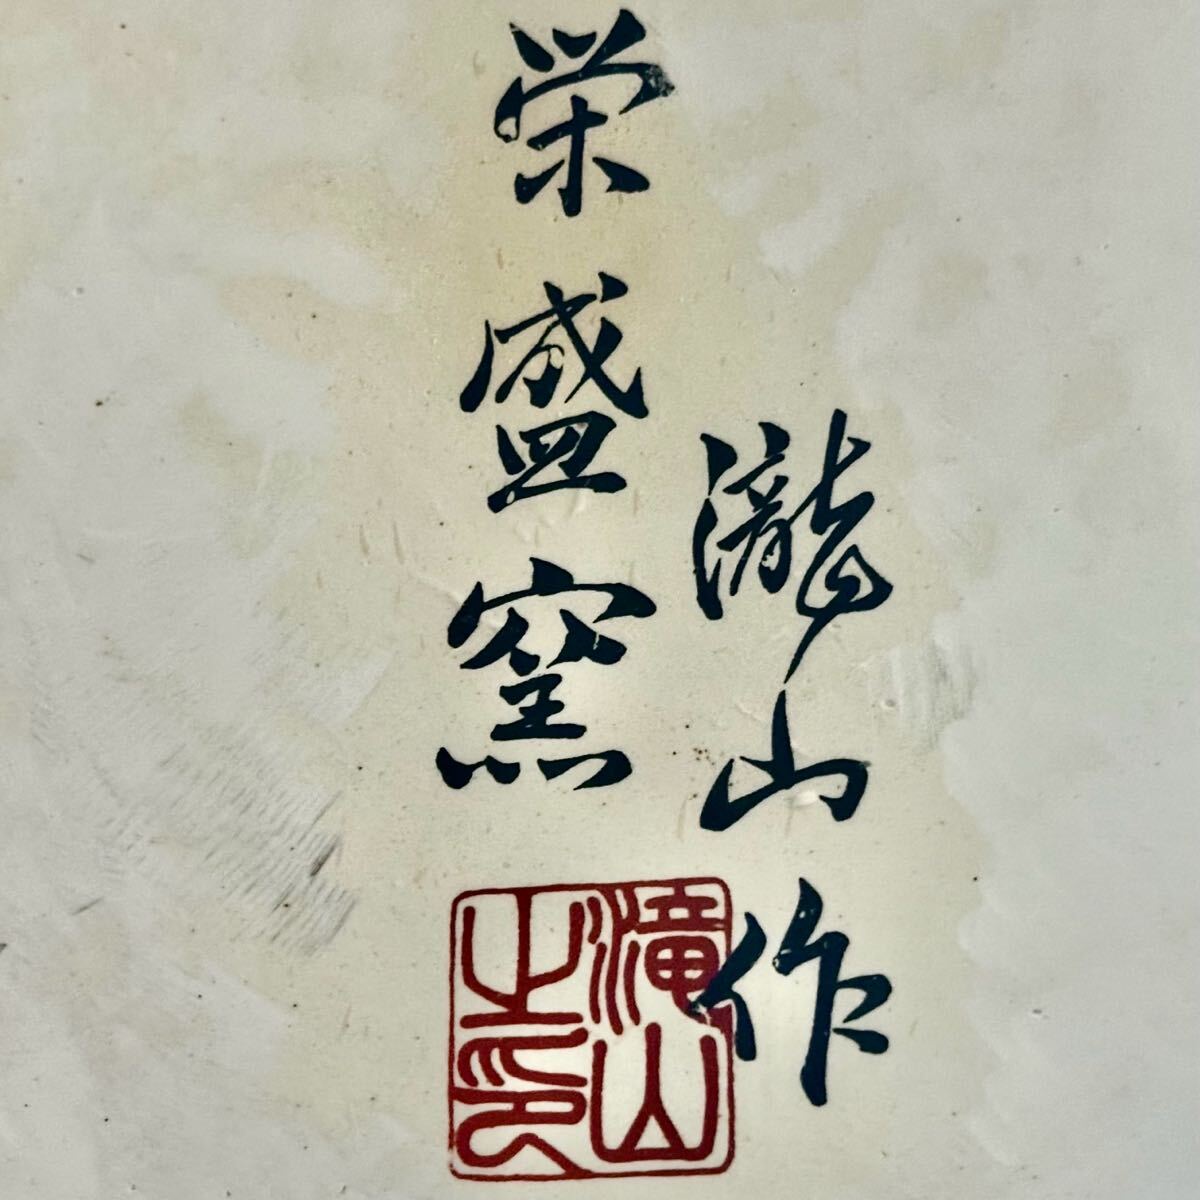 栄盛窯
瀧山作
滝山之印